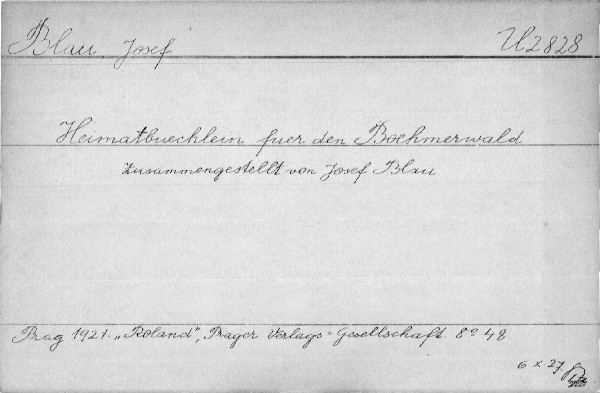 Blau, Josef U2828
Heimatbuechlein fuer den Boehmerwald
Zusammengestellt von Josef Blau
Prag 1921. „Roland", Prager Verlags-Gesellschaft. 8° 48
6 X. 27